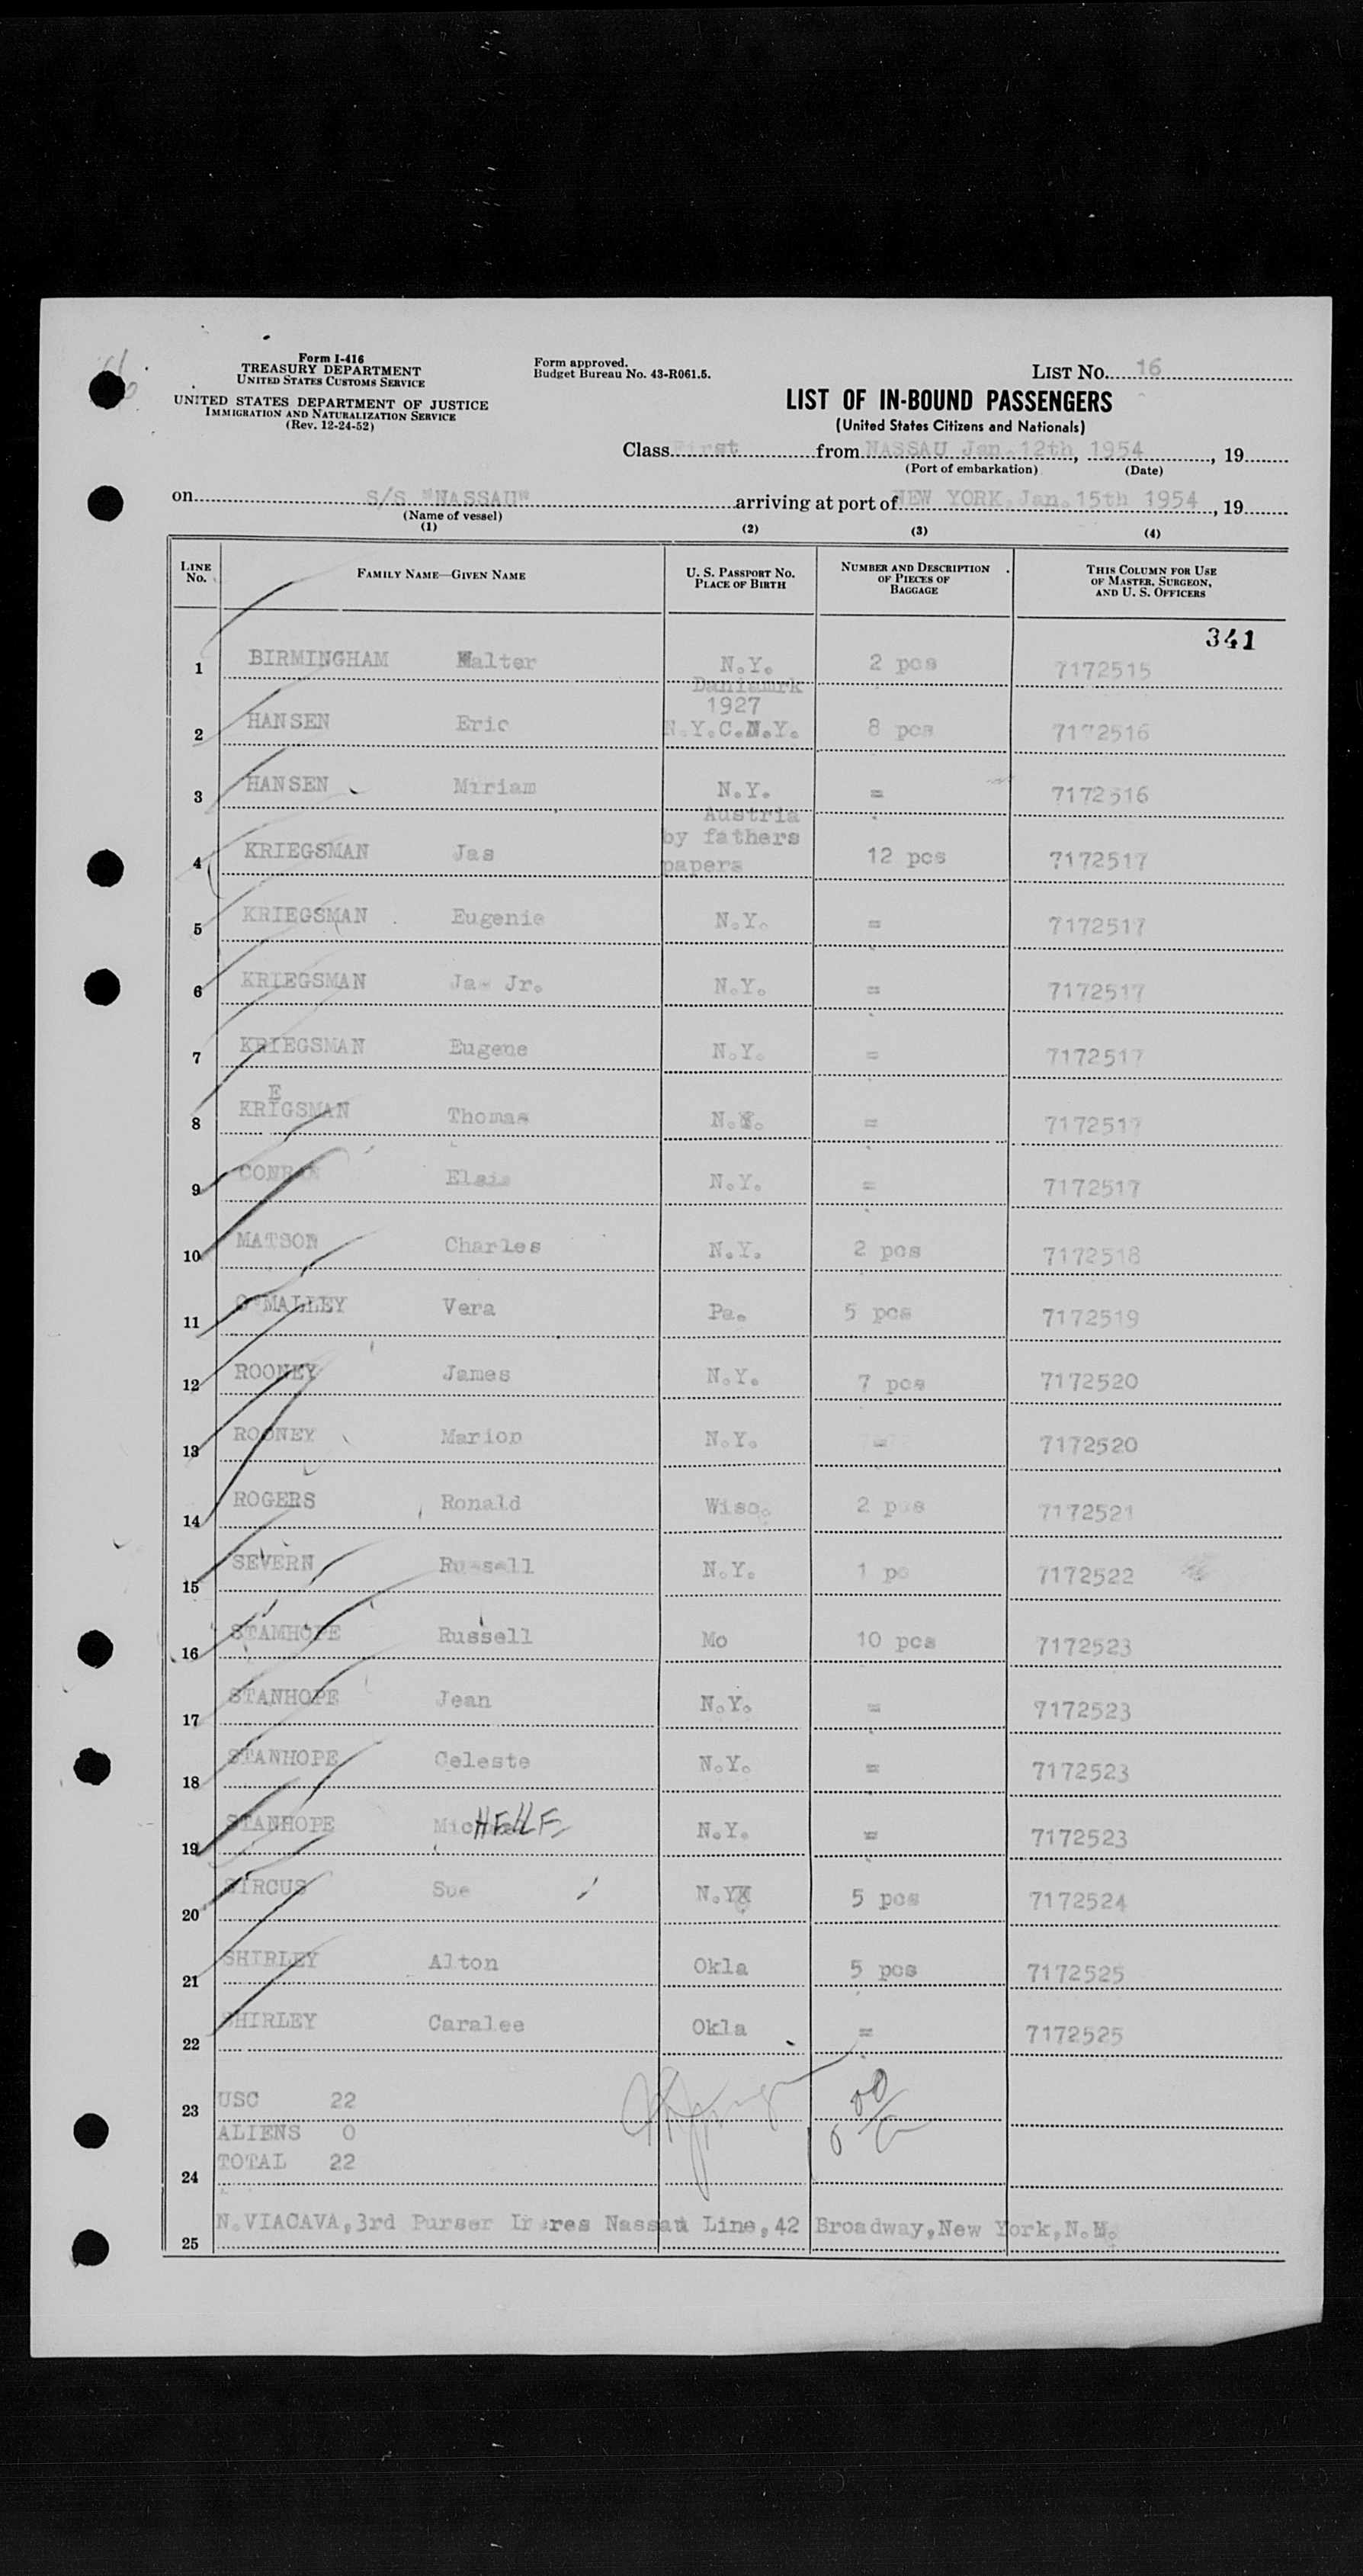 Form I-416
TREASURY DEPARTMENT
UNITED STATES CUSTOMS SERVICE
UNITED STATES DEPARTMENT OF JUSTICE
IMMIGRATION AND NATURALIZATION SERVICE
(Rev. 12-24-52)
Form approved.
Budget Bureau No. 43-R061.5.
LIST No. 16
LIST OF IN-BOUND PASSENGERS
(United States Citizens and Nationals)
Class First from NASSAU Jan.12th, 1954, 19
(Port of embarkation) (Date)
on S/S "NASSAU" arriving at port of NEW YORK,Jan.15th 1954, 19
(Name of vessel)
(1) (2) (3) (4)
LINE No. FAMILY NAME—GIVEN NAME U. S. PASSPORT NO. PLACE OF BIRTH NUMBER AND DESCRIPTION OF PIECES OF BAGGAGE THIS COLUMN FOR USE OF MASTER, SURGEON, AND U. S. OFFICERS
341
1 BIRMINGHAM Walter N.Y. 2 pcs 7172515
1927
2 HANSEN Eric N.Y.C.N.Y. 8 pcs 7172516
3 HANSEN Miriam N.Y. = 7172516
Austria
by fathers
4 KRIEGSMAN Jas papers 12 pcs 7172517
5 KRIEGSMAN Eugenie N.Y. = 7172517
6 KRIEGSMAN Jas Jr. N.Y. = 7172517
7 KRIEGSMAN Eugene N.Y. = 7172517
E
8 KRIGSMAN Thomas N.Y. = 7172517
9 N.Y. = 7172517
10 MATSON Charles N.Y. 2 pcs 7172518
11 O'MALLEY Vera Pa. 5 pcs 7172519
12 ROONEY James N.Y. 7 pcs 7172520
13 ROONEY Marion N.Y. = 7172520
14 ROGERS Ronald Wisc. 2 pcs 7172521
15 SEVERN Russell N.Y. 1 pc 7172522
16 STAMHOPE Russell Mo 10 pcs 7172523
17 STANHOPE Jean N.Y. = 7172523
18 STANHOPE Celeste N.Y. = 7172523
19 STANHOPE MicHELLE N.Y. = 7172523
20 SIRCUS Sue N.Y. 5 pcs 7172524
21 SHIRLEY Alton Okla 5 pcs 7172525
22 SHIRLEY Caralee Okla = 7172525
23 USC 22
ALIENS 0
24 TOTAL 22
25 N.VIACAVA,3rd Purser Incres Nassau Line,42 Broadway,New York,N.Y.